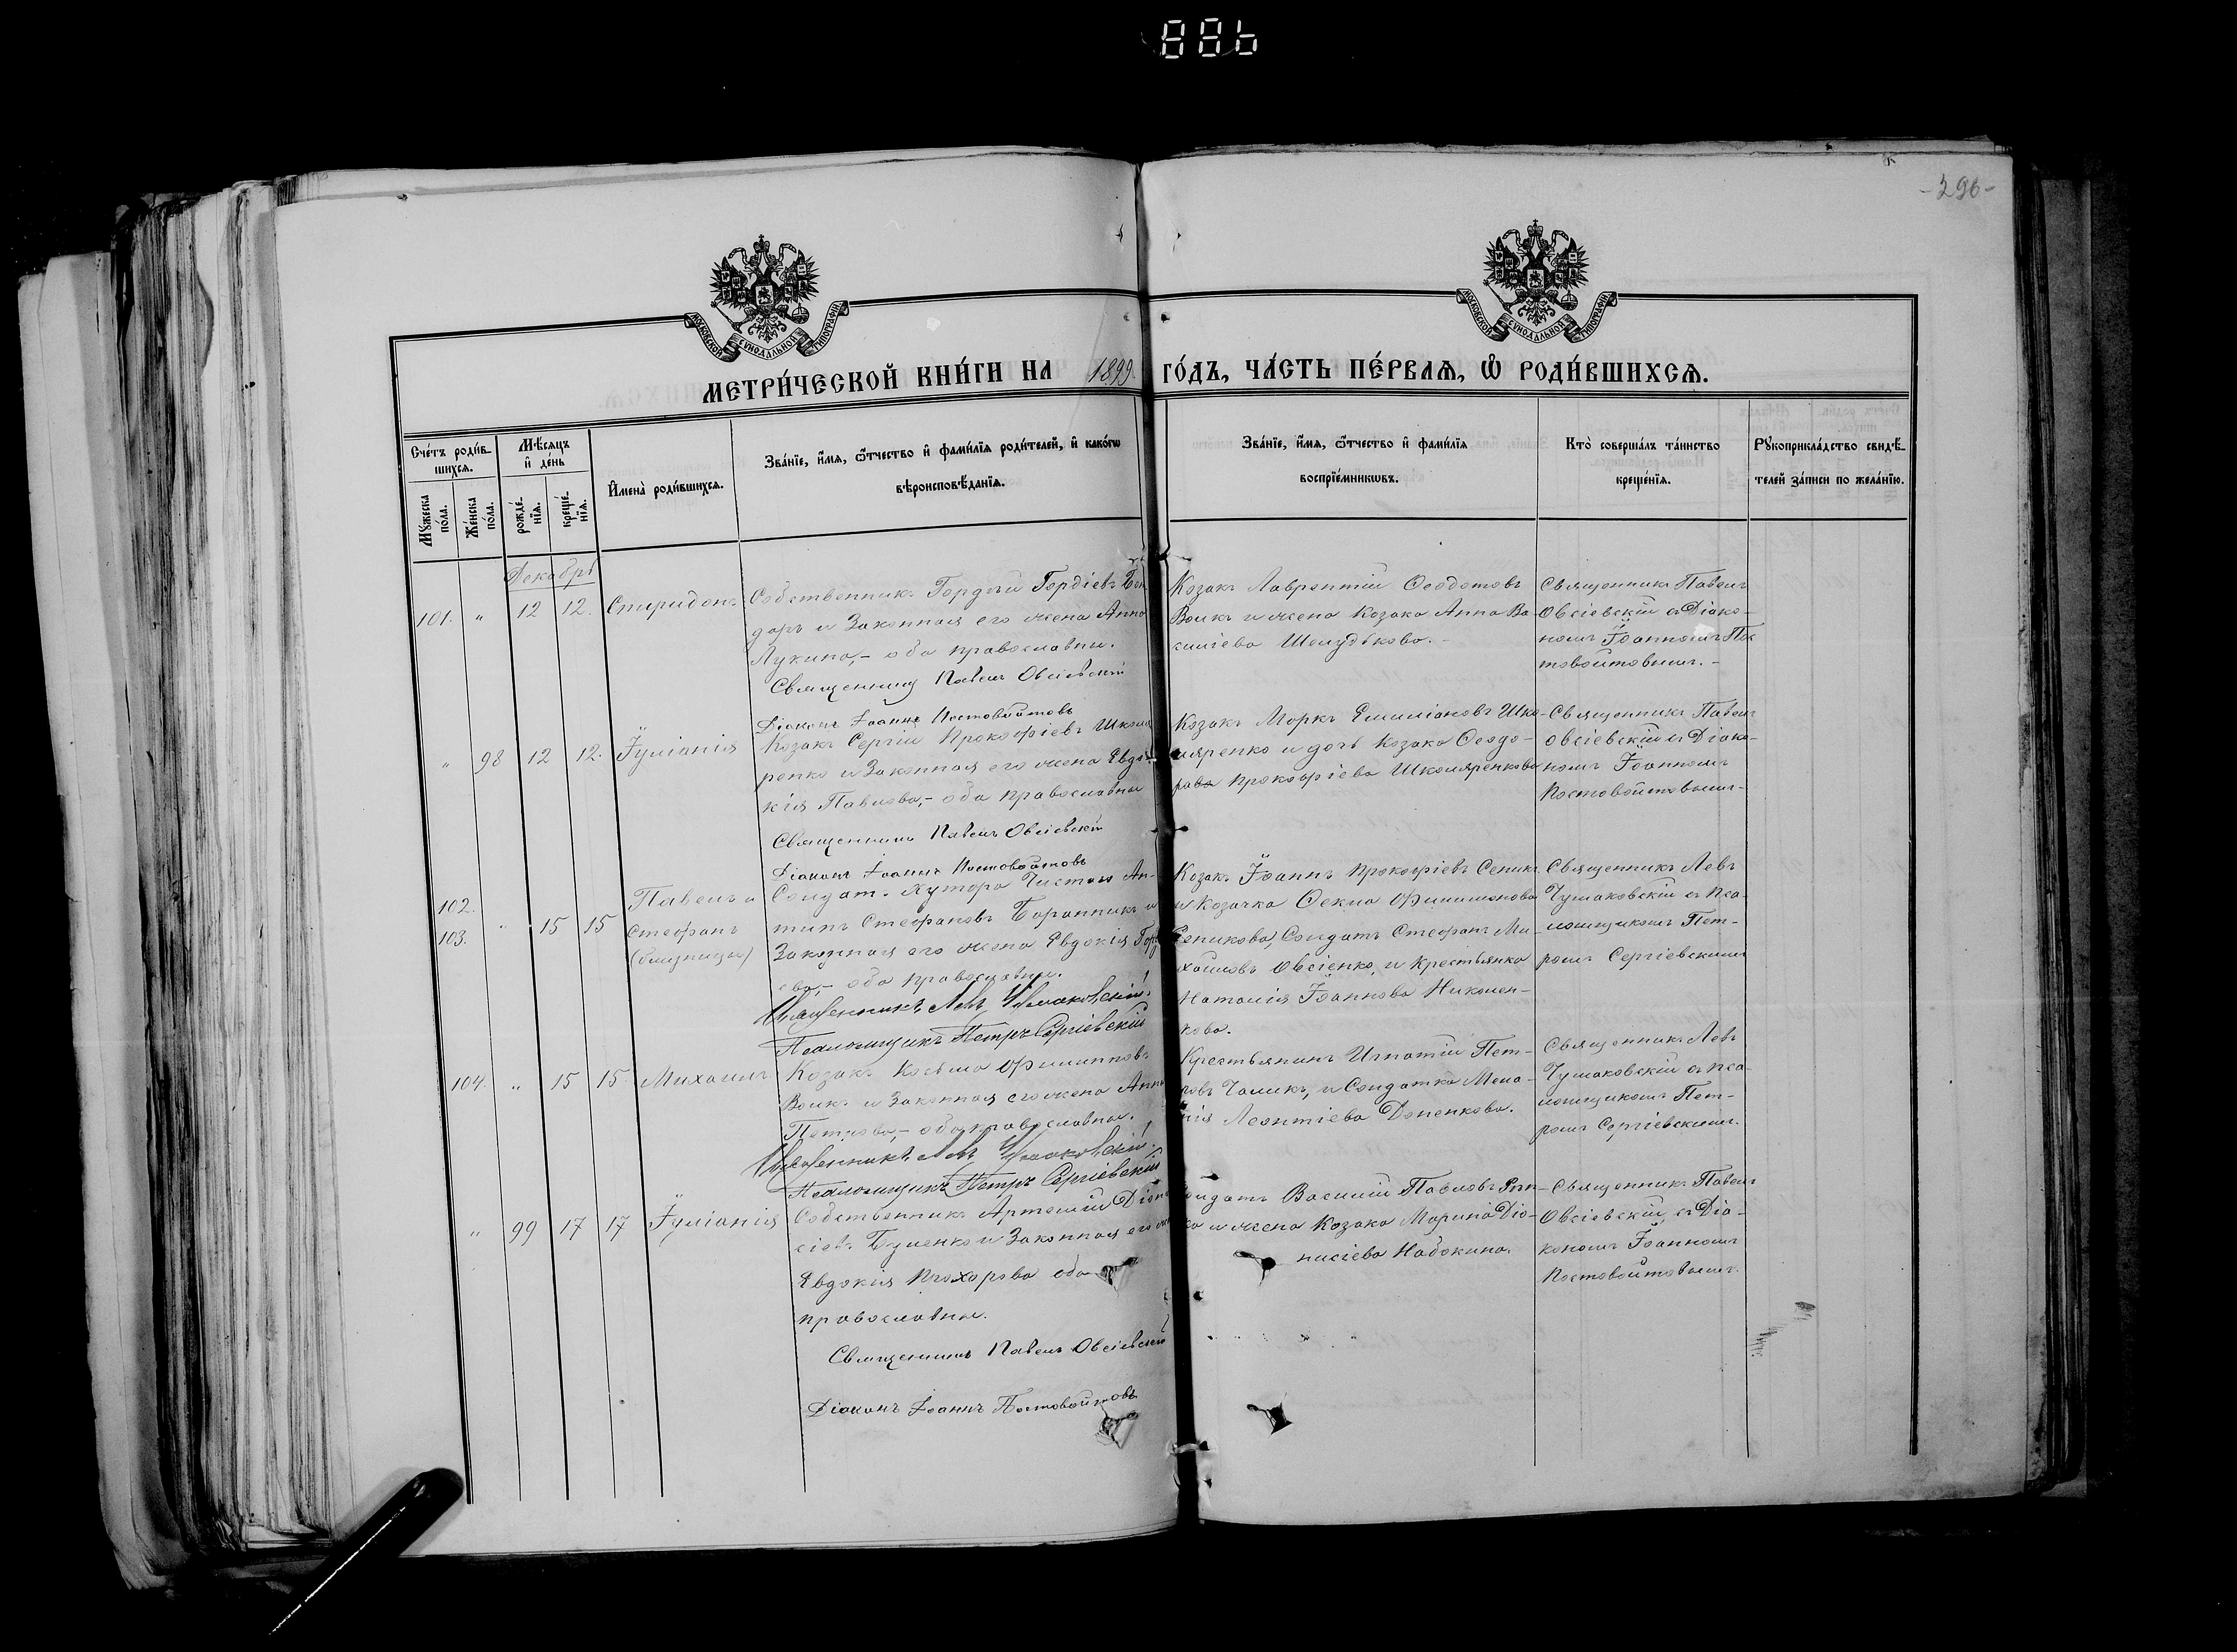 886
-296-
МОСКОВСКОЙ СѴНОДАЛЬНОЙ ТИПОГРАФІИ
МОСКОВСКОЙ СѴНОДАЛЬНОЙ ТИПОГРАФІИ
МЕТРИ́ЧЕСКОЙ КНИ́ГИ НА 1899 ГО́ДЪ, ЧА́СТЬ ПЕ́РВАѦ, Ѽ РОДИ́ВШИХСѦ.
Сче́тъ роди́в-
шихся.
Мѣ́сяцъ
и҆ де́нь
Мꙋ́жеска
по́ла.
Же́нска
по́ла.
рожде́-
нїя.
креще́-
нїя.
И҆мена̀ роди́вшихся.
Зва́нїе, и҆́мя, ѻ҆́тчество и҆ фами́лїя роди́телей, и҆ како́гѡ
вѣроисповѣ́данїя.
Зва́нїе, и҆́мя, ѻ҆́тчество и҆ фами́лїя
воспрїе́мникѡвъ.
Кто̀ соверша́лъ та́инство
креще́нїя.
Рꙋкоприкла́дство свидѣ́-
телей за́писи по жела́нїю.
Декабрь
101. " 12 12. Спиридонъ
Собственникъ Гордѣй Гордіевъ Бон-
даръ и Законная его жена Анна
Лукина,- оба православны.
Священникъ Павелъ Овсіевскій
Діаконъ Іоаннъ Постовойтовъ
Козакъ Лаврентій Ѳеодотовъ
Вовкъ и жена Козака Анна Ва-
силіева Шелудькова.-
Священникъ Павелъ
Овсіевскій съ Діако-
номъ Іоанномъ Пос
товойтовымъ.-
" 98 12 12. Іуліанія
Козакъ Сергій Прокофіевъ Школя
ренко и Законная его жена Евдо-
кія Павлова,- оба православны
Священникъ Павелъ Овсіевскій
Діаконъ Іоаннъ Постовойтовъ
Козакъ Маркъ Емиліановъ Шко-
ляренко и дочь Козака Ѳеодо-
рова Прокофіева Школяренкова
Священникъ Павелъ
Овсіевскій съ Діако-
номъ Іоанномъ
Постовойтовымъ-
102.
103. " 15 15
Павелъ и
Стефанъ
(близнецы)
Солдат. хутора Чистаго Ан-
типъ Стефановъ Баранникъ и
Законная его жена Евдокія
ева,- оба православны.
Священникъ Левъ Чумаковскій
Псаломщикъ Петръ Сергіевскій
Козакъ Іоаннъ Прокофіевъ Сеникъ
и Козачка Ѳекла Филимонова
Сеникова, Солдатъ Стефанъ Ми-
хайловъ Овсіенко, и Крестьянка
Наталія Іоаннова Николен-
кова.
Священникъ Левъ
Чумаковскій съ Пса-
ломщикомъ Пет-
ромъ Сергіевскимъ
104. " 15 15 Михаилъ
Козакъ Косьма Филипповъ
Вовкъ и Законная его жена Анна
Петрова,- оба православны.
Священникъ Левъ Чумаковскій
Псаломщикъ Петръ Сергіевскій
Крестьянинъ Игнатій Пет-
ровъ Чаликъ, и Солдатка Мела-
нія Леонтіева Доненкова.
Священникъ Левъ
Чумаковскій съ Пса-
ломщикомъ Пет-
ромъ Сергіевскимъ.
" 99 17 17 Іуліанія
Собственникъ Артемій Діони
сіевъ Буленко и Законная его жена
Евдокія Прохорова оба
православны.
Священникъ Павелъ Овсіевскій
Діаконъ Іоаннъ Постовойтовъ
Солдатъ Василій Павловъ
ка и жена Козака Марина Діо-
нисіева Набокина.
Священникъ Павелъ
Овсіевскій, съ Діа-
кономъ Іоанномъ
Постовойтовымъ.